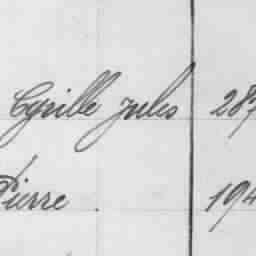 Cyrille Jules 287
Pierre 194